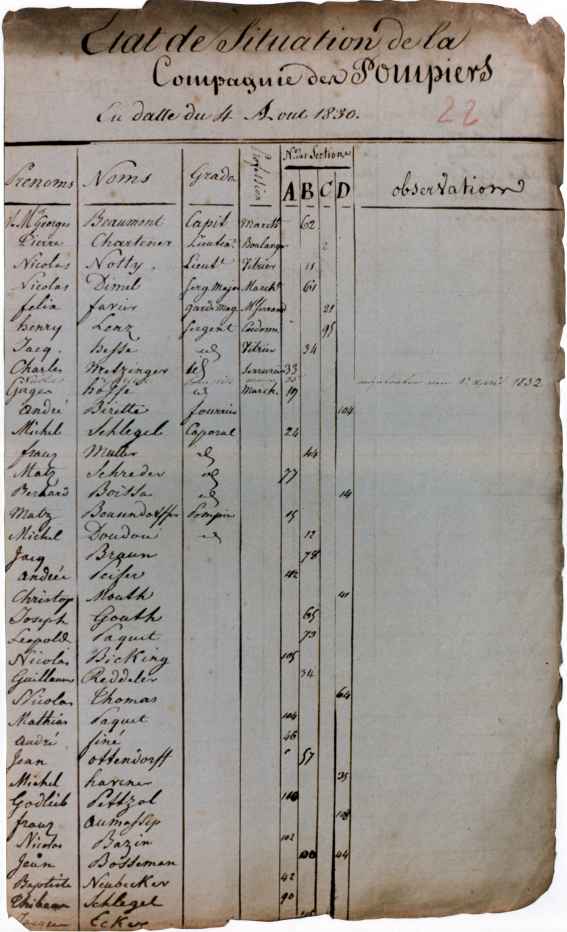 Etat de Situation de la
Compagnie des Pompiers
En datte du 4 Aout 1830.
22
Prenoms Noms Grade Profession Nos des Sections A B C D observation
Georges Beaumont Capit 62
Pierre Chartener Lieuten. Boulanger 2
Nicolas Notty. Lieut. Vitrier 11
Nicolas Dimel Serg Major March. 61
felix favier 21
henry Lonz Sergent Cordonn 95
Jacq. Hesse id Vitrier 34
Charles Metzinger id Serrurier 33
1832
hosse id March. 19
André Birette fourrier 104
Michel Schlegel Caporal 24
franz Muller id 44
Matz Schreder id 77
Bernard Boissa id 14
Matz Pompier 15
Michel Doudou id 12
Jacq Braun 78
Andrée Peifer 112
Christop Mouth 41
Joseph Gouth 65
Leopold Paquet 73
Nicolas Bicking 105
Guillaume Reddeler 34
Nicolas Thomas 64
Mathias Paquet 104
André finé 46
Jean ottendorff 57
Michel havener 35
Godlieb Pettzol
franz
Nicolas Bazin 102
Jean Bosseman 44
Baptiste Neubecker 42
Thibeau Schlegel 90
Ecker